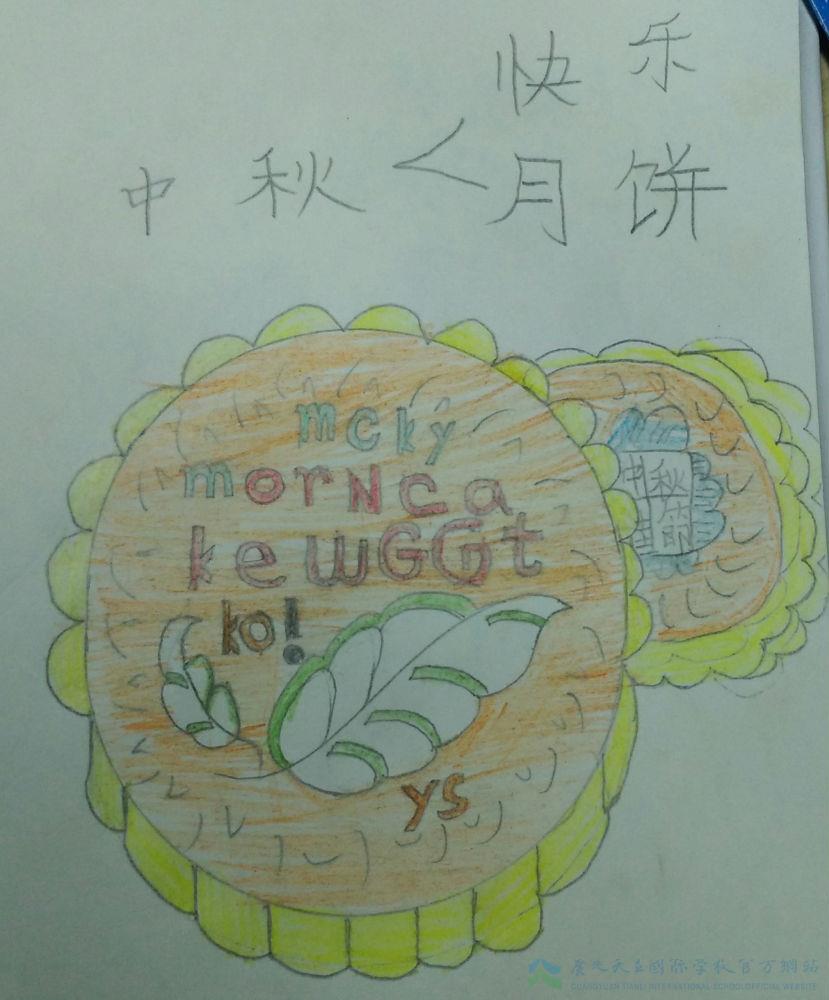 快乐
中秋<月饼
mcky
morNca
ke wGGt
ko!
中秋
节
ys
广元天立国际学校官方网站
GUANGYUAN TIANLI INTERNATIONAL SCHOOL OFFICIAL WEBSITE